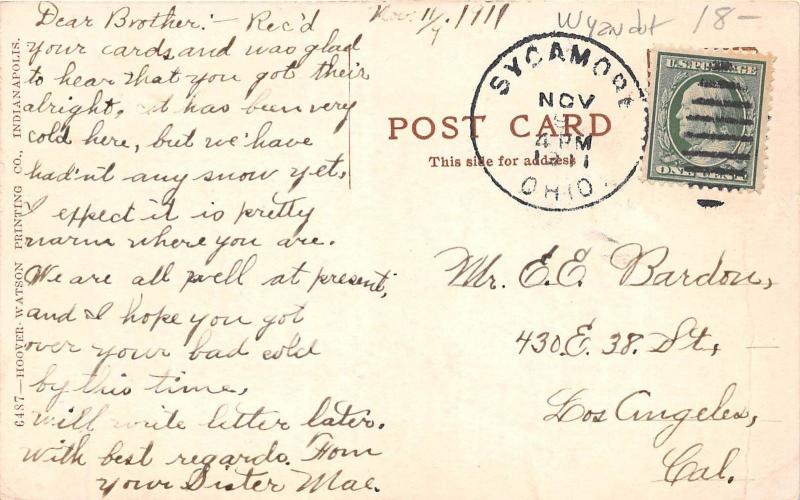 Dear Brother:- Rec'd
your cards and was glad
to hear that you got their
alright. It has been very
cold here, but we have
had'nt any snow yet.
I expect it is pretty
warm where you are.
We are all well at present,
and I hope you got
over your bad cold
by this time.
will write letter later.
With best regards. From
your Sister Mae.
Nov. 1911
Wyandot 18-
SYCAMORE
NOV
4 PM
1911
OHIO.
U.S. POSTAGE
ONE CENT
POST CARD
This side for address
Mr. E.E. Bardon,
430 E. 38. St.,
Los Angeles,
Cal.
6487—HOOVER-WATSON PRINTING CO., INDIANAPOLIS.